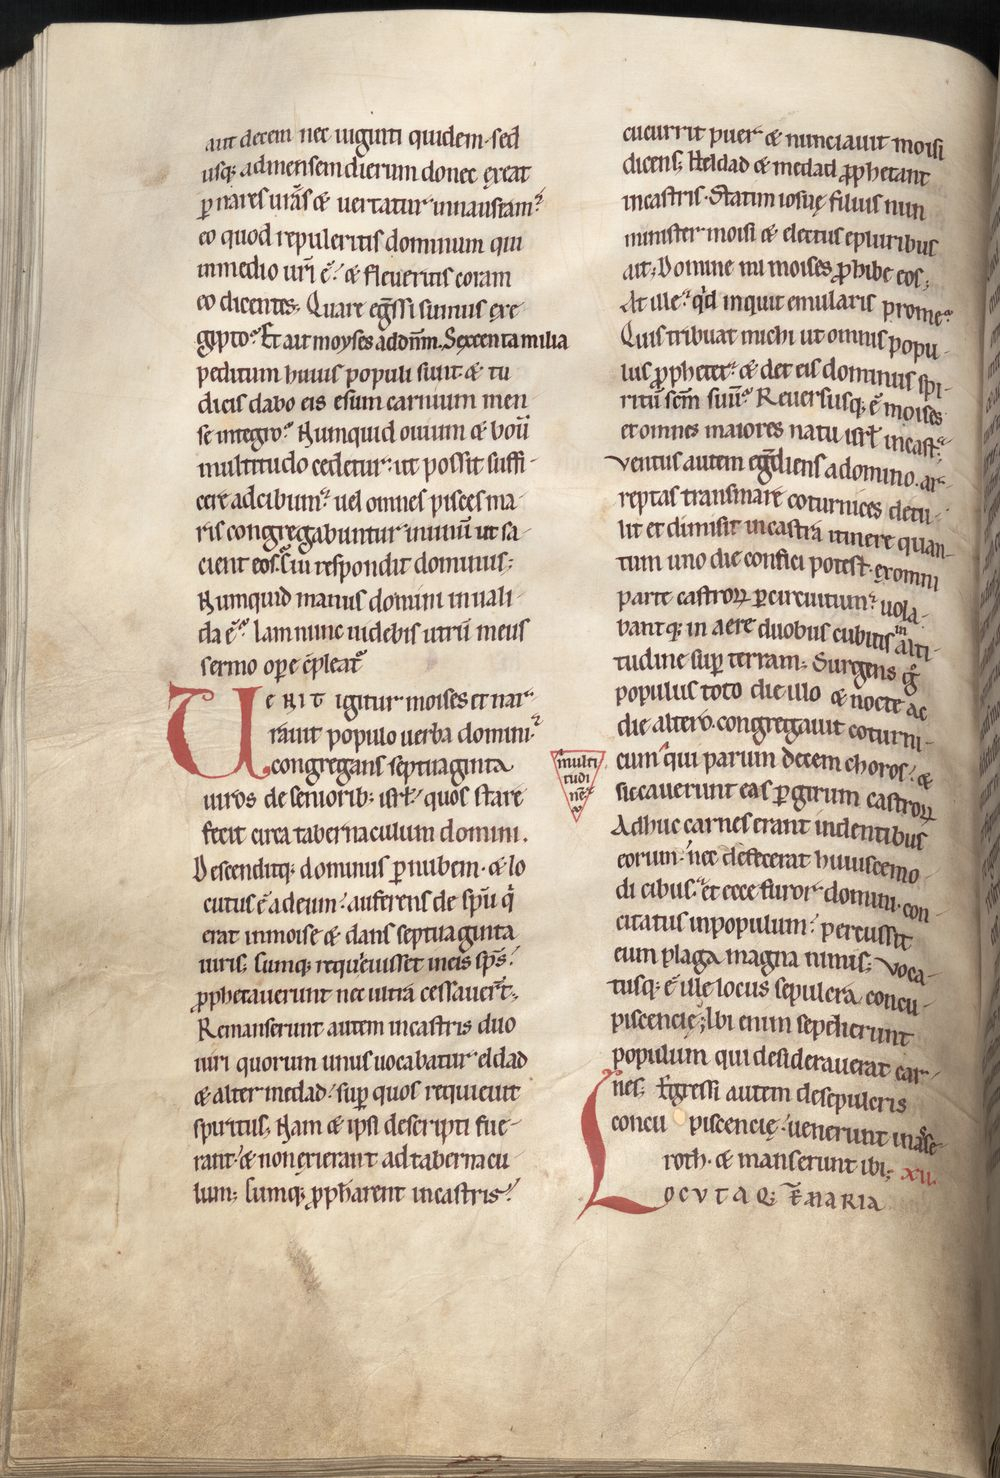 aut decem nec uiginti quidem· sed
usq; ad mensem dierum donec exeat
ꝑ nares ur̃as & uertatur in nausiam?
eo quod repuleritis dominum qui
in medio ur̃i ẽ? & fleueritis coram
eo dicentes; Quare eg̃ssi sumus exe
gipto? Et ait moyses ad dñm. Sexcenta milia
peditum huius populi sunt & tu
dicis dabo eis esum carnium men
se integro? Numquid ouium & boũ
multitudo cedetur? ut possit suffi-
cere ad cibum? uel omnes pisces ma-
ris congregabuntur in unũ ut sa-
cient eos? Cui respondit dominus;
Numquid manus domini inuali-
da ẽ? Iam nunc uidebis utrũ meus
sermo oꝑe c̃pleat᷑
UENIT igitur moises et nar-
rauit populo uerba domini?
congregans septuaginta
uiros de seniorib; isrł? quos stare
fecit circa tabernaculum domini.
Descenditq; dominus ꝑ nubem· & lo
cutus ẽ ad eum? auferens de sp̃u q̃
erat in moise & dans septuaginta
uiris; Cumq; requieuisset in eis sp̃s?
ꝓphetauerunt nec ultra cessauer̃t;
Remanserunt autem in castris duo
uiri quorum unus uocabatur eldad
& alter medad? suꝑ quos requieuit
spiritus; Nam & ipsi descripti fue-
rant? & non exierant ad tabernacu
lum; Cumq; ꝓpharent in castris?
cucurrit puer & nunciauit moisi
dicens; Heldad & medad ꝓphetant
in castris· Statim iosue filius nun
minister moisi & electus e pluribus
ait; Domine mi moises ꝓhibe eos;
At ille? qd inquit emularis pro me?
Quis tribuat michi ut omnis popu-
lus ꝓphetet? & det eis dominus spi-
ritũ scm̃ suũ? Reuersusq; ẽ moises
et omnes maiores natu isrł in castra?
Ventus autem eg̃diens a domino· ar-
reptas trans mare coturnices detu-
lit et dimisit in castra itinere quan-
tum uno die confici potest· ex omni
parte castroꝝ ꝑ circuitum? uola-
bantq; in aere duobus cubitis in alti-
tudine suꝑ terram; Surgens g̃
populus toto die illo & nocte ac
die altero· congregauit coturni-
cum? qui parum decem choros? &
siccauerunt eas ꝑ girum castroꝝ
Adhuc carnes erant in dentibus
eorum? nec defecerat huiuscemo-
di cibus? et ecce furor domini· con-
citatus in populum? percussit
eum plaga magna nimis; Voca-
tusq; ẽ ille locus sepulcra concu-
piscencie; Ibi enim sepelierunt
populum qui desiderauerat car-
nes; Egressi autem de sepulcris
concu piscencie? uenerunt in ase-
roth· & manserunt ibi; XII.
LOCUTAQ; Ẽ MARIA
multi
tudi
nẽ